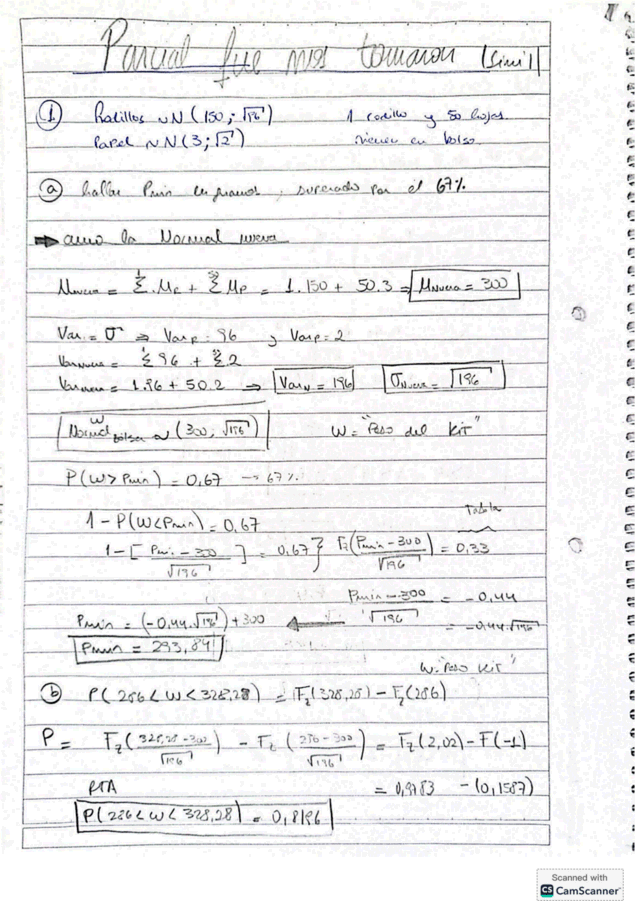 Parcial que nos tomaron (simil)
① Rodillos ~N(150; √96) 1 rodillo y 50 hojas
Papel ~N(3; √2) vienen en bolsa
ⓐ hallar Pmin en gramos, superado por el 67%
➡ armo la Normal nueva
μnueva = Σ¹.μr + Σ⁵⁰ μp = 1.150 + 50.3 = μNueva = 300
Var = σ ⇒ Varr = 96 y Varp = 2
Varnueva = Σ¹ 96 + Σ⁵⁰ 2
Varnueva = 1.96 + 50.2 ⇒ VarN = 196 σNueva = √196
W
Normal bolsa ~ (300, √196) W = "Peso del KIT"
P(W > Pmin) = 0,67 → 67%
1 - P(W < Pmin) = 0,67 Tabla
1 - [Pmin - 300 / √196] = 0,67 } Fz(Pmin - 300 / √196) = 0,33
Pmin - 300 / √196 = -0,44
Pmin = (-0,44.√196) + 300 ⟵ = -0,44.√196
Pmin = 293,84
W: "Peso KIT"
ⓑ P(286 < W < 328,28) = Fz(328,28) - Fz(286)
P = Fz(328,28 - 300 / √196) - Fz(286 - 300 / √196) = Fz(2,02) - F(-1)
RTA = 0,9783 - (0,1587)
P(286 < W < 328,28) = 0,8196
Scanned with
CS CamScanner